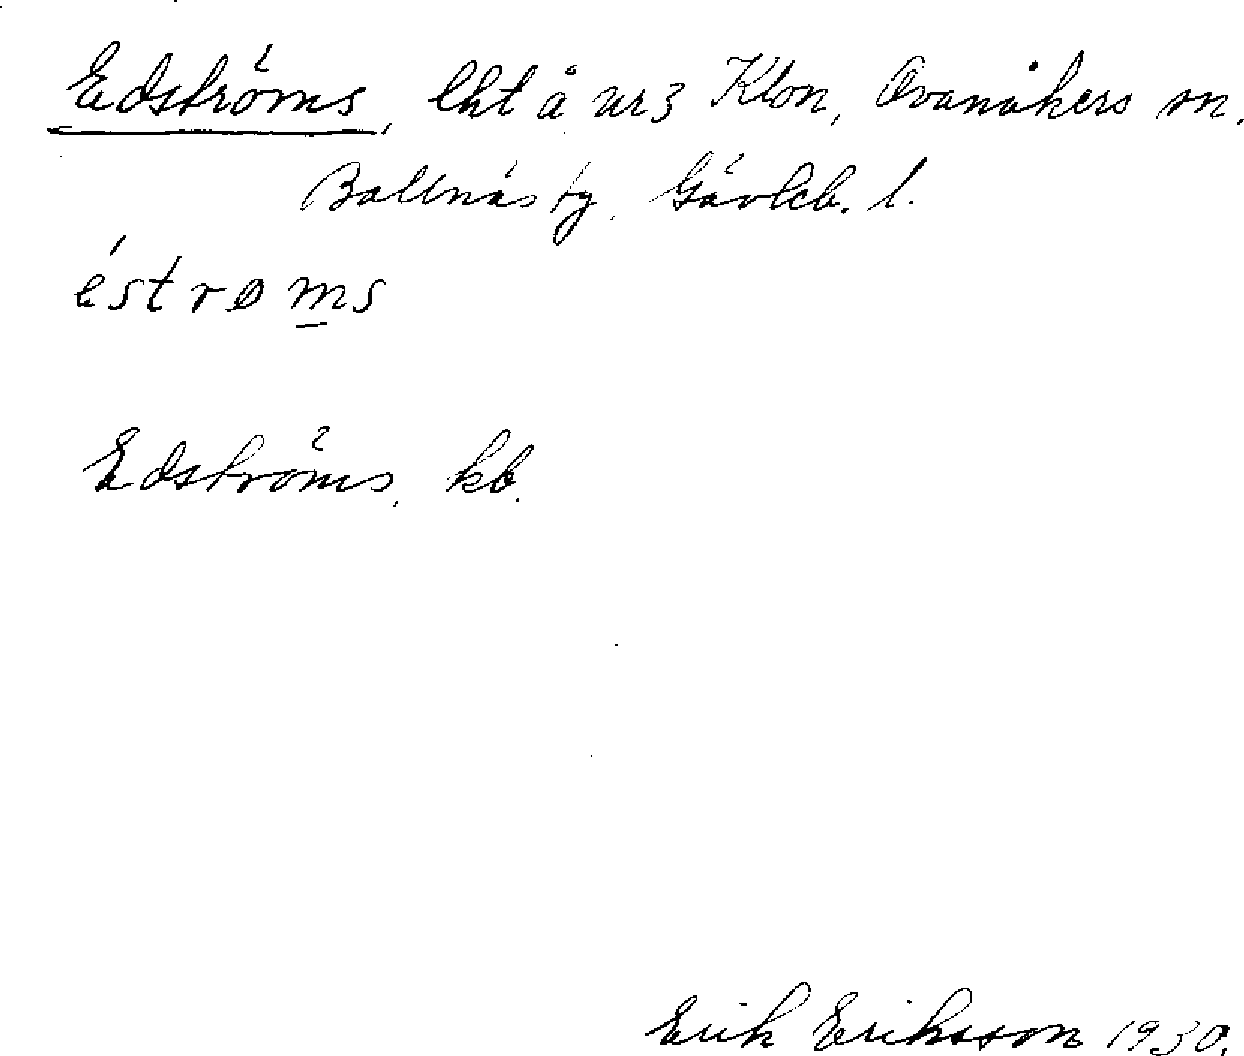 Edströms, lht å nr 3 Klon, Ovanåkers sn.
Bollnäs tg. Gävleb. l.
éstrøms
Edströms, kb.
Erik Eriksson 1930.